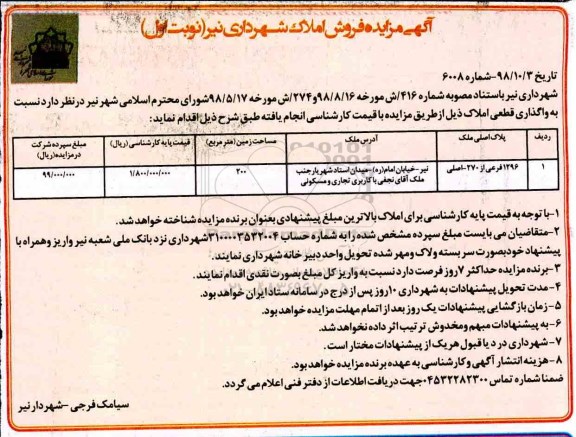 آگهی مزایده فروش املاک شهرداری نیر (نوبت اول)
تاریخ ۹۸/۱۰/۳-شماره ۶۰۰۸
شهرداری نیر باستناد مصوبه شماره ۴۱۶/ش مورخه ۹۸/۸/۱۶ و ۲۷۴/ش مورخه ۹۸/۵/۱۷ شورای محترم اسلامی شهر نیر در نظر دارد نسبت
به واگذاری قطعی املاک ذیل از طریق مزایده با قیمت کارشناسی انجام یافته طبق شرح ذیل اقدام نماید:
ردیف	پلاک اصلی ملک	آدرس ملک	مساحت زمین (متر مربع)	قیمت پایه کارشناسی (ریال)	مبلغ سپرده شرکت در مزایده (ریال)
۱	۱۲۹۶ فرعی از ۲۷۰-اصلی	نیر-خیابان امام(ره)-میدان استاد شهریار جنب ملک آقای نجفی با کاربری تجاری و مسکونی	۲۰۰	۱/۸۰۰/۰۰۰/۰۰۰	۹۹/۰۰۰/۰۰۰
۱-با توجه به قیمت پایه کارشناسی برای املاک بالاترین مبلغ پیشنهادی بعنوان برنده مزایده شناخته خواهد شد.
۲-متقاضیان می بایست مبلغ سپرده مشخص شده را به شماره حساب ۳۱۰۰۰۰۳۵۳۲۰۰۴ شهرداری نزد بانک ملی شعبه نیر واریز و همراه با
پیشنهاد خود بصورت سر بسته و لاک و مهر شده تحویل واحد دبیر خانه شهرداری نمایند.
۳-برنده مزایده حداکثر ۷ روز فرصت دارد نسبت به واریز کل مبلغ بصورت نقدی اقدام نمایند.
۴-مدت تحویل پیشنهادات به شهرداری ۱۰ روز پس از درج در سامانه ستاد ایران خواهد بود.
۵-زمان بازگشایی پیشنهادات یک روز بعد از اتمام مهلت مزایده خواهد بود.
۶-به پیشنهادات مبهم و مخدوش ترتیب اثر داده نخواهد شد.
۷-شهرداری در رد یا قبول هر یک از پیشنهادات مختار است.
۸-هزینه انتشار آگهی و کارشناسی به عهده برنده مزایده خواهد بود.
ضمنا شماره تماس ۰۴۵۳۲۲۸۲۳۰۰ جهت دریافت اطلاعات از دفتر فنی اعلام می گردد.
سیامک فرجی -شهردار نیر